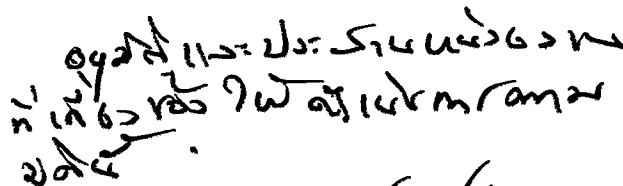 อนุมัติ และประสานหน่วยงาน
ที่เกี่ยวข้อง ให้ดำเนินการตาม
มตินี้